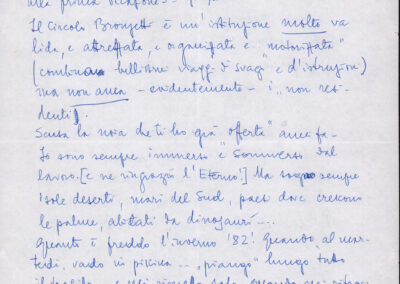 alla prima occasione
Il Circolo Bronzetti è un'istituzione molto va
lida, e attrezzata, e organizzata e "motorizzata"
(continua bellissimi viaggi di svago e d'istruzione)
ma non - evidentemente - i "non resi-
denti".
Scusa la noia che ti ho già "offerta"
Io sono sempre immerso e sommerso dal
lavoro. [e ne ringrazio l'Eterno!] Ma sogno sempre
isole deserti, mari del Sud, paesi dove crescono
le palme, abitati da dinosauri....
Quanto è freddo l'inverno '82! Quando, al mar-
tedì, vado in piscina ... "piango" lungo tutto